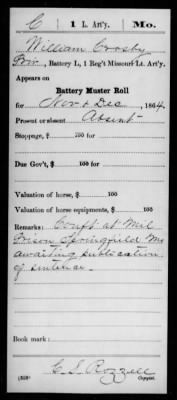 C | 1 L. Art'y. | Mo.
William Crosby
Priv., Battery L, 1 Reg't Missouri Lt. Art'y.
Appears on
Battery Muster Roll
for Nov & Dec, 1864.
Present or absent Absent
Stoppage, $ 100 for
Due Gov't, $ 100 for
Valuation of horse, $ 100
Valuation of horse equipments, $ 100
Remarks: Conft at Mil
Prison Springfield Mo
awaiting publication
of sentence.
Book mark:
C. S. Rozzell
(858) Copyist.